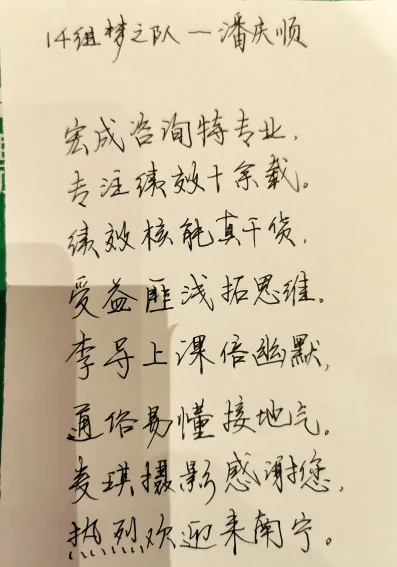 14组梦之队一潘庆顺
宏成咨询特专业,
专注绩效十余载。
绩效核能真干货,
受益匪浅拓思维。
李导上课倍幽默,
通俗易懂接地气。
麦琪摄影感谢您,
热烈欢迎来南宁。